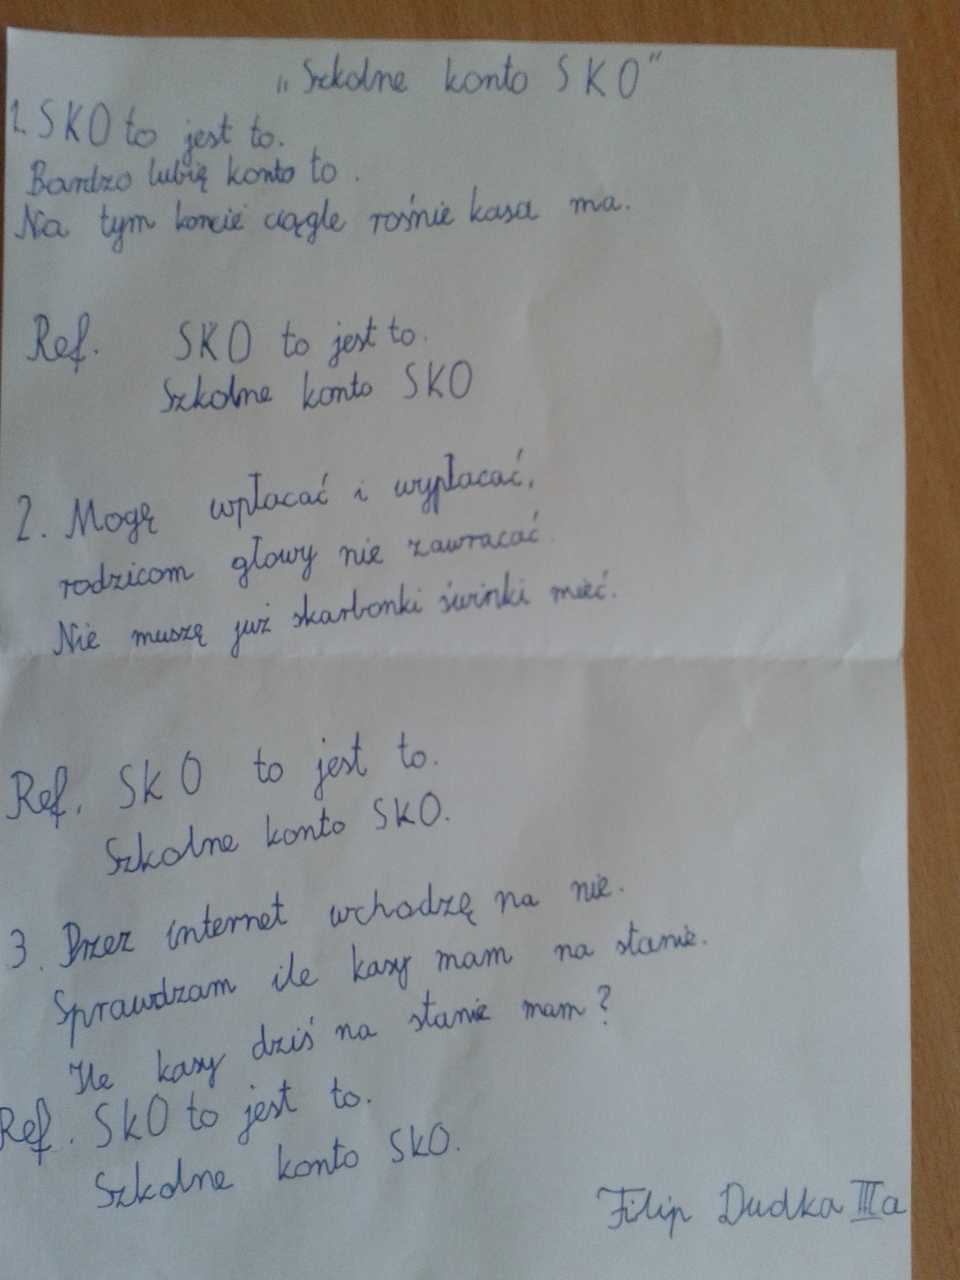 „Szkolne konto SKO"
1. SKO to jest to.
Bardzo lubię konto to.
Na tym koncie ciągle rośnie kasa ma.
Ref. SKO to jest to.
Szkolne konto SKO
2. Mogę wpłacać i wypłacać,
rodzicom głowy nie zawracać.
Nie muszę już skarbonki świnki mieć.
Ref. SKO to jest to.
Szkolne konto SKO.
3. Przez internet wchodzę na nie.
Sprawdzam ile kasy mam na stanie.
Ile kasy dziś na stanie mam?
Ref. SKO to jest to.
Szkolne konto SKO.
Filip Dudka IIIa